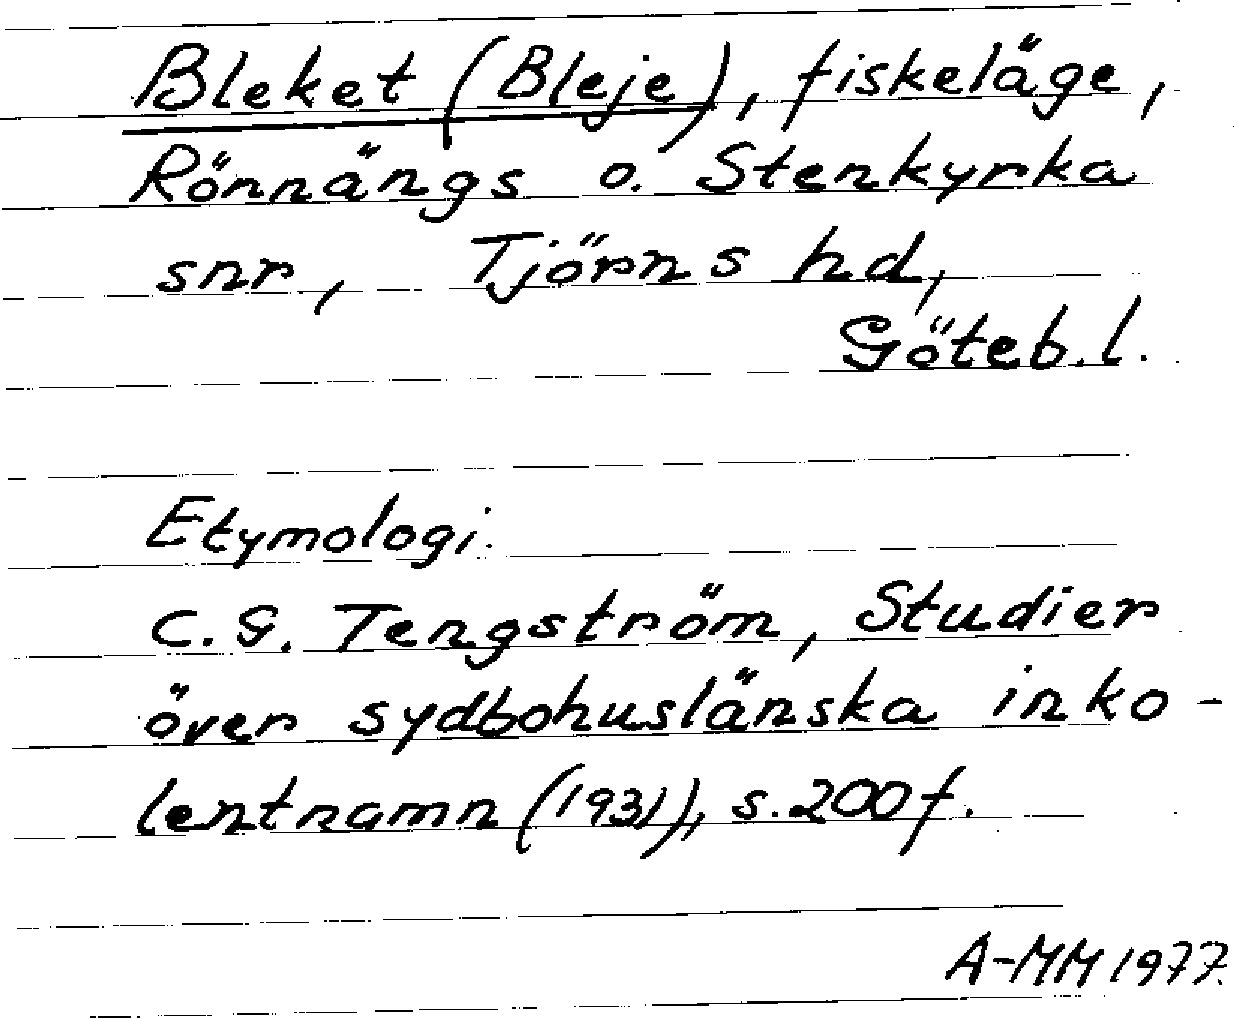 Bleket (Bleje), fiskeläge,
Rönnängs o. Stenkyrka
snr, Tjörns hd,
Göteb. l.
Etymologi:
C. G. Tengström, Studier
över sydbohuslänska inko-
lentnamn (1931), s. 200 f.
A-MM 1977.